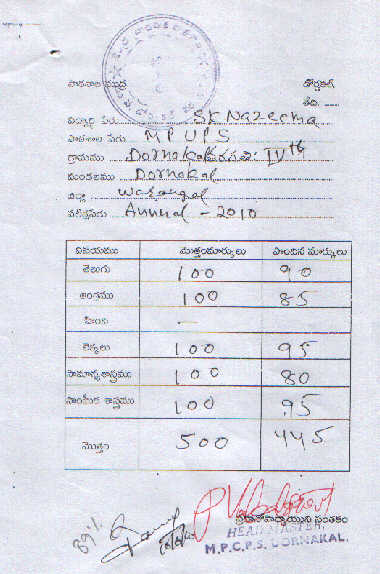 పాఠశాల ముద్ర డోర్నకల్
తేది. .....
విద్యార్థి పేరు SK Nazeema
పాఠశాల పేరు M P U P S
గ్రామము Dornakal తరగతి: IVth
మండలము Dornakal
జిల్లా Warangal
పరీక్షపేరు Annual - 2010
విషయము మొత్తంమార్కులు పొందిన మార్కులు
తెలుగు 100 90
ఆంగ్లము 100 85
హింది —
లెక్కలు 100 95
సామాన్యశాస్త్రము 100 80
సాంఘీక శాస్త్రము 100 95
మొత్తం 500 445
89%
ప్రధానోపాధ్యాయుని సంతకం
HEAD MASTER
M.P.C.P.S. DORNAKAL.